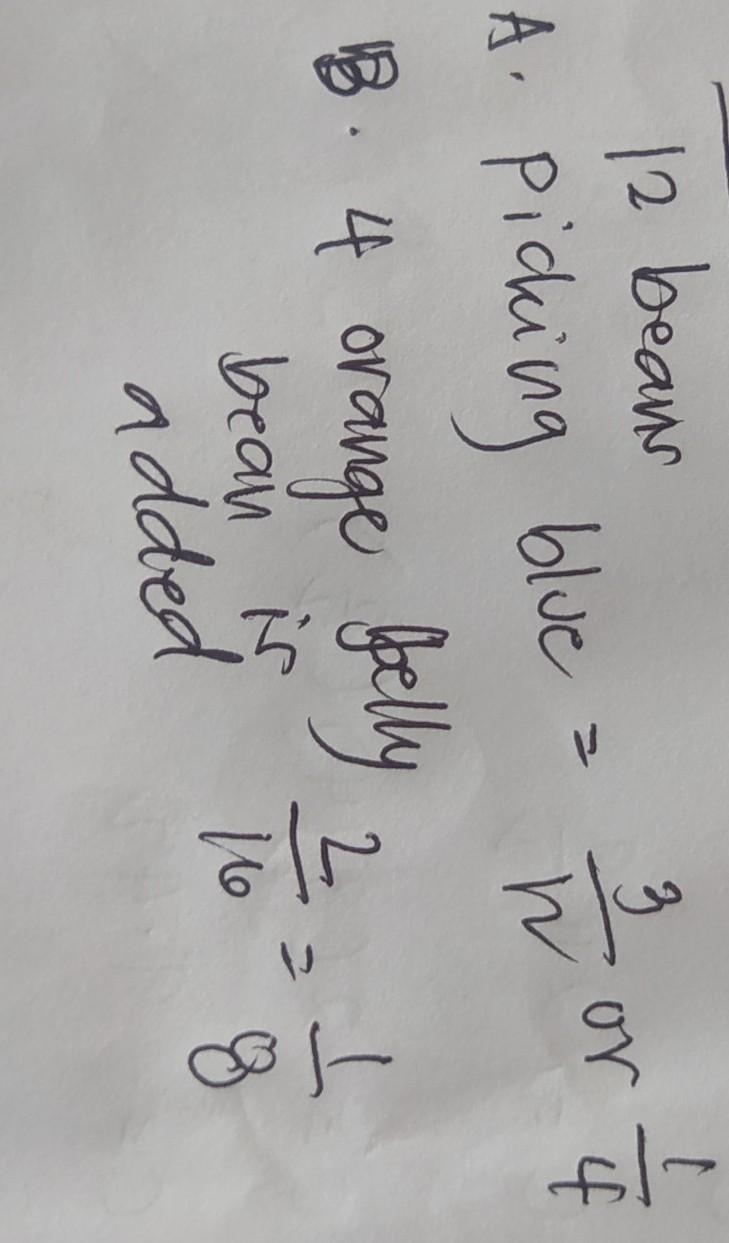 12 beans
A. picking blue = 3/12 or 1/4
B. 4 orange jelly 2/16 = 1/8
bean is
added